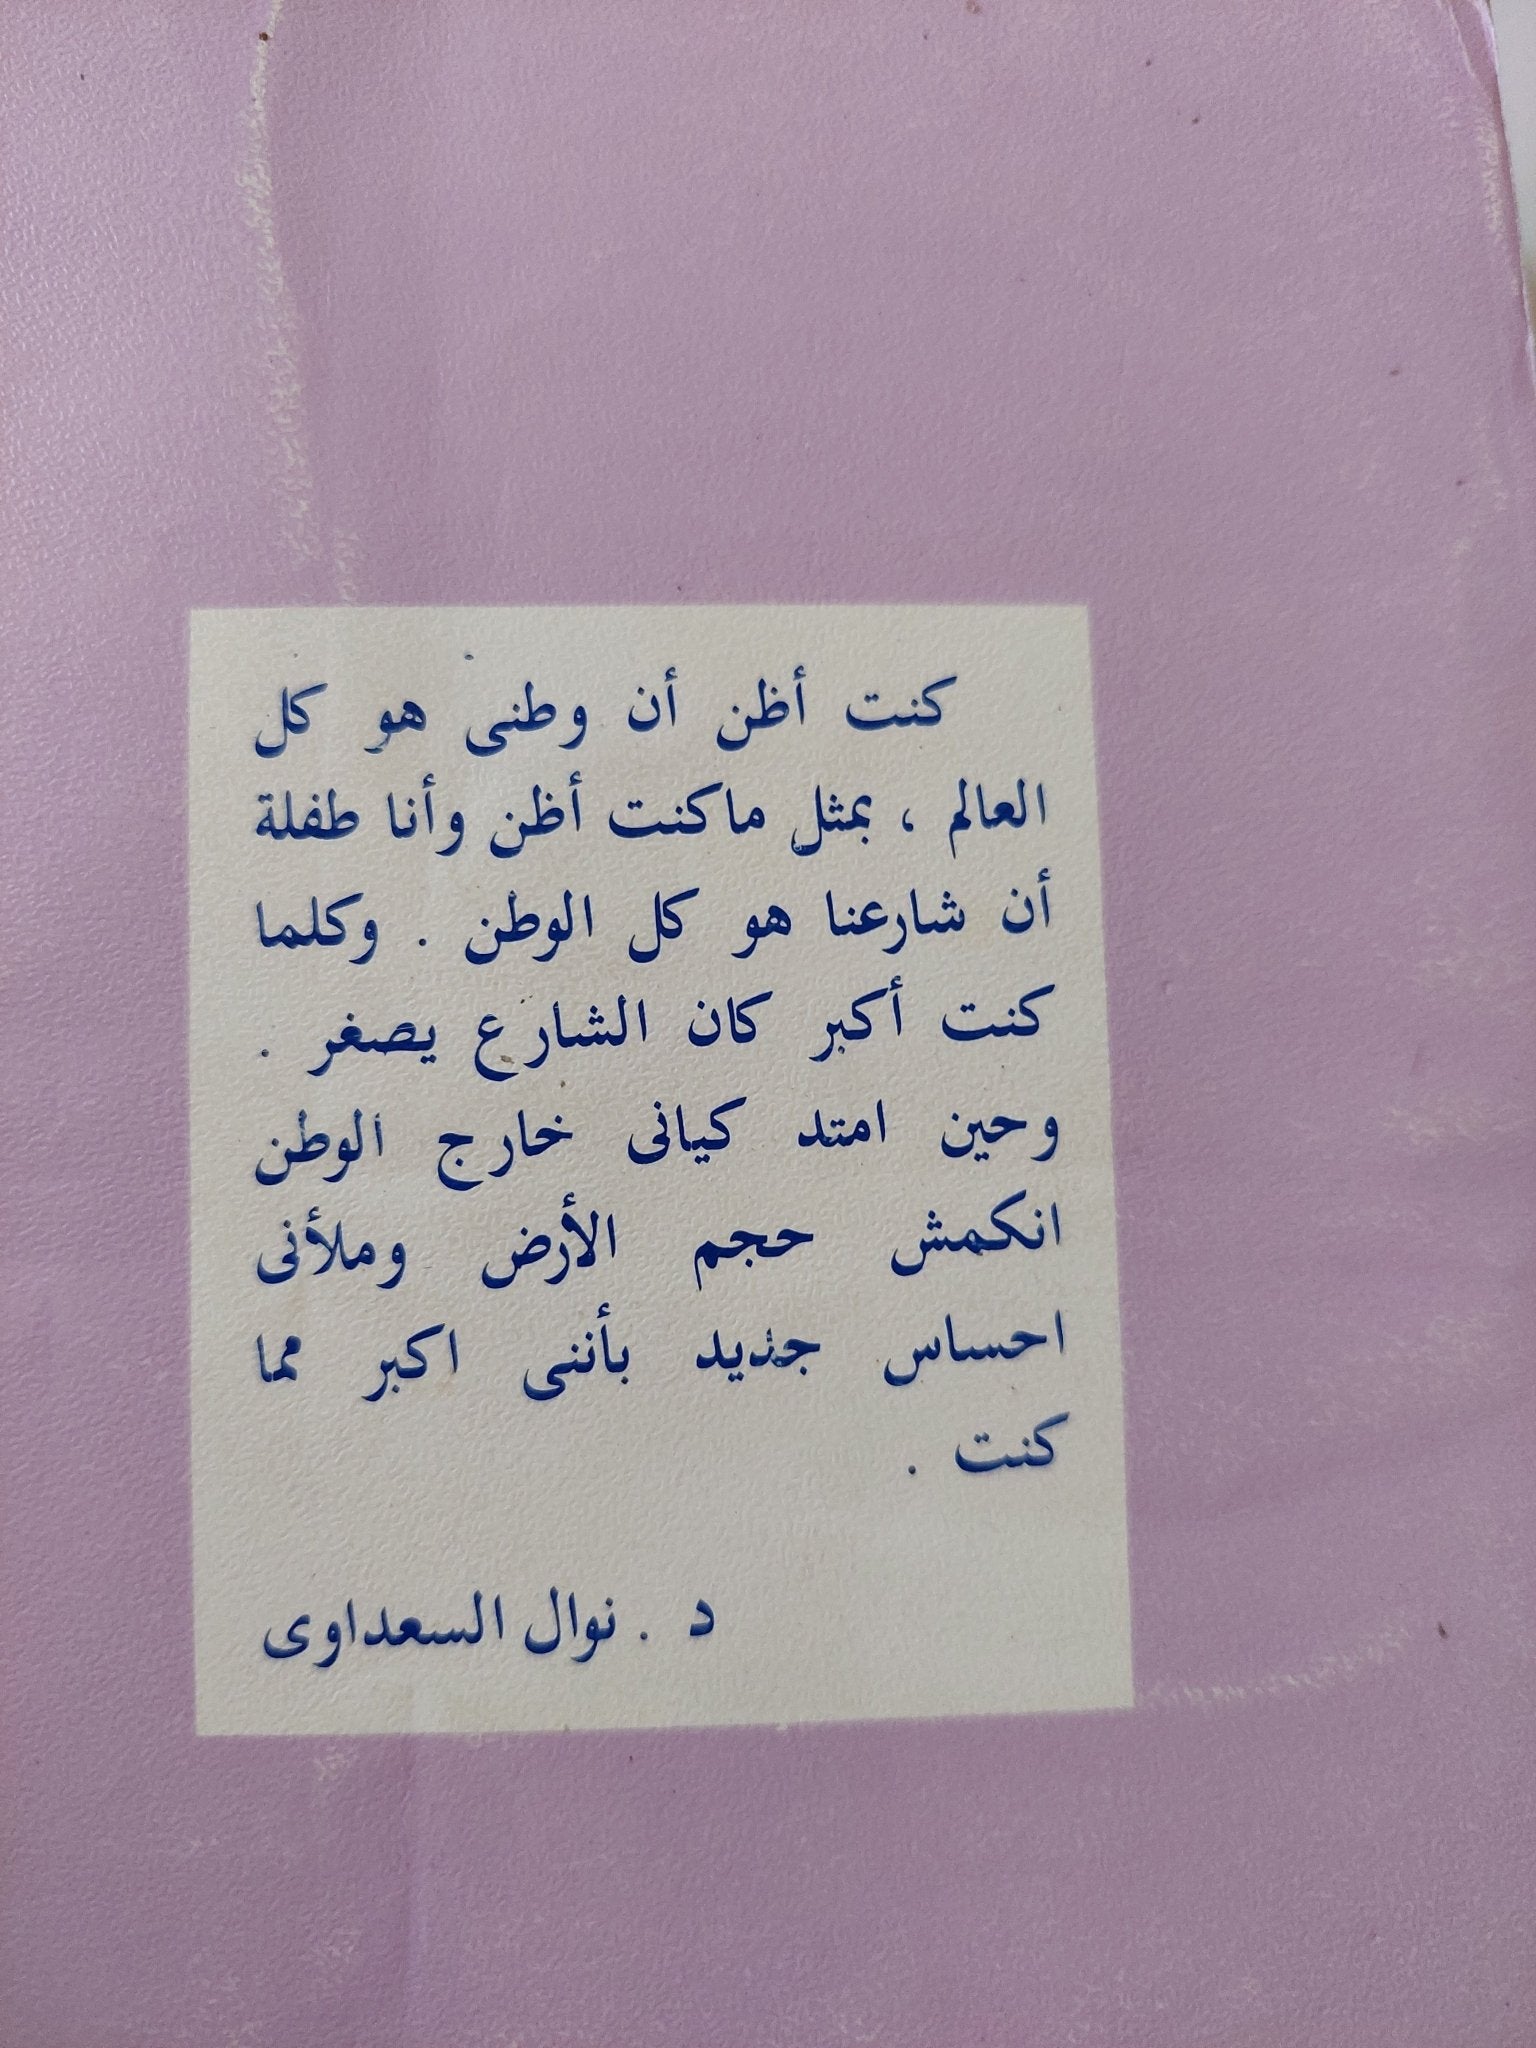 كنت أظن أن وطنى هو كل
العالم ، بمثل ماكنت أظن وأنا طفلة
أن شارعنا هو كل الوطن . وكلما
كنت أكبر كان الشارع يصغر .
وحين امتد كيانى خارج الوطن
انكمش حجم الأرض وملأنى
احساس جديد بأننى اكبر مما
كنت .
د . نوال السعداوى